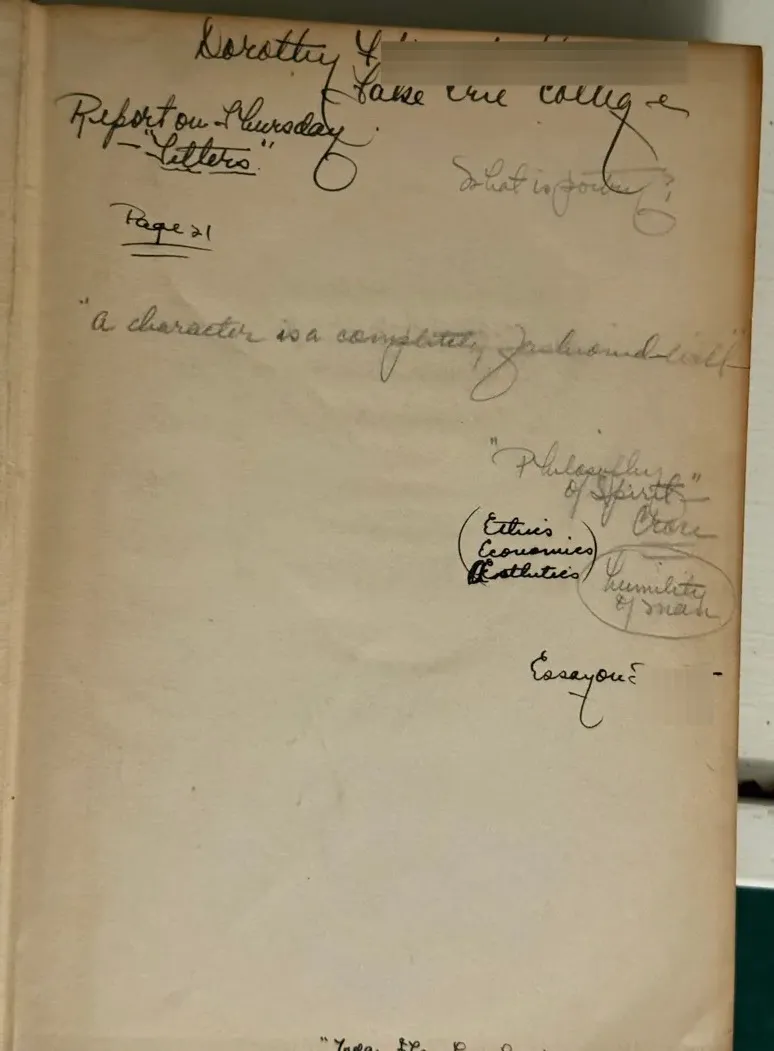 Dorothy
Lake Erie College
Report on Thursday.
- "Letters"
What is poetry?
Page 21
"a character is a completely fashioned will"
"Philosophy
of Spirit"
Croce
(Ethics
Economics
Aesthetics)
humility
of man
Essay on: